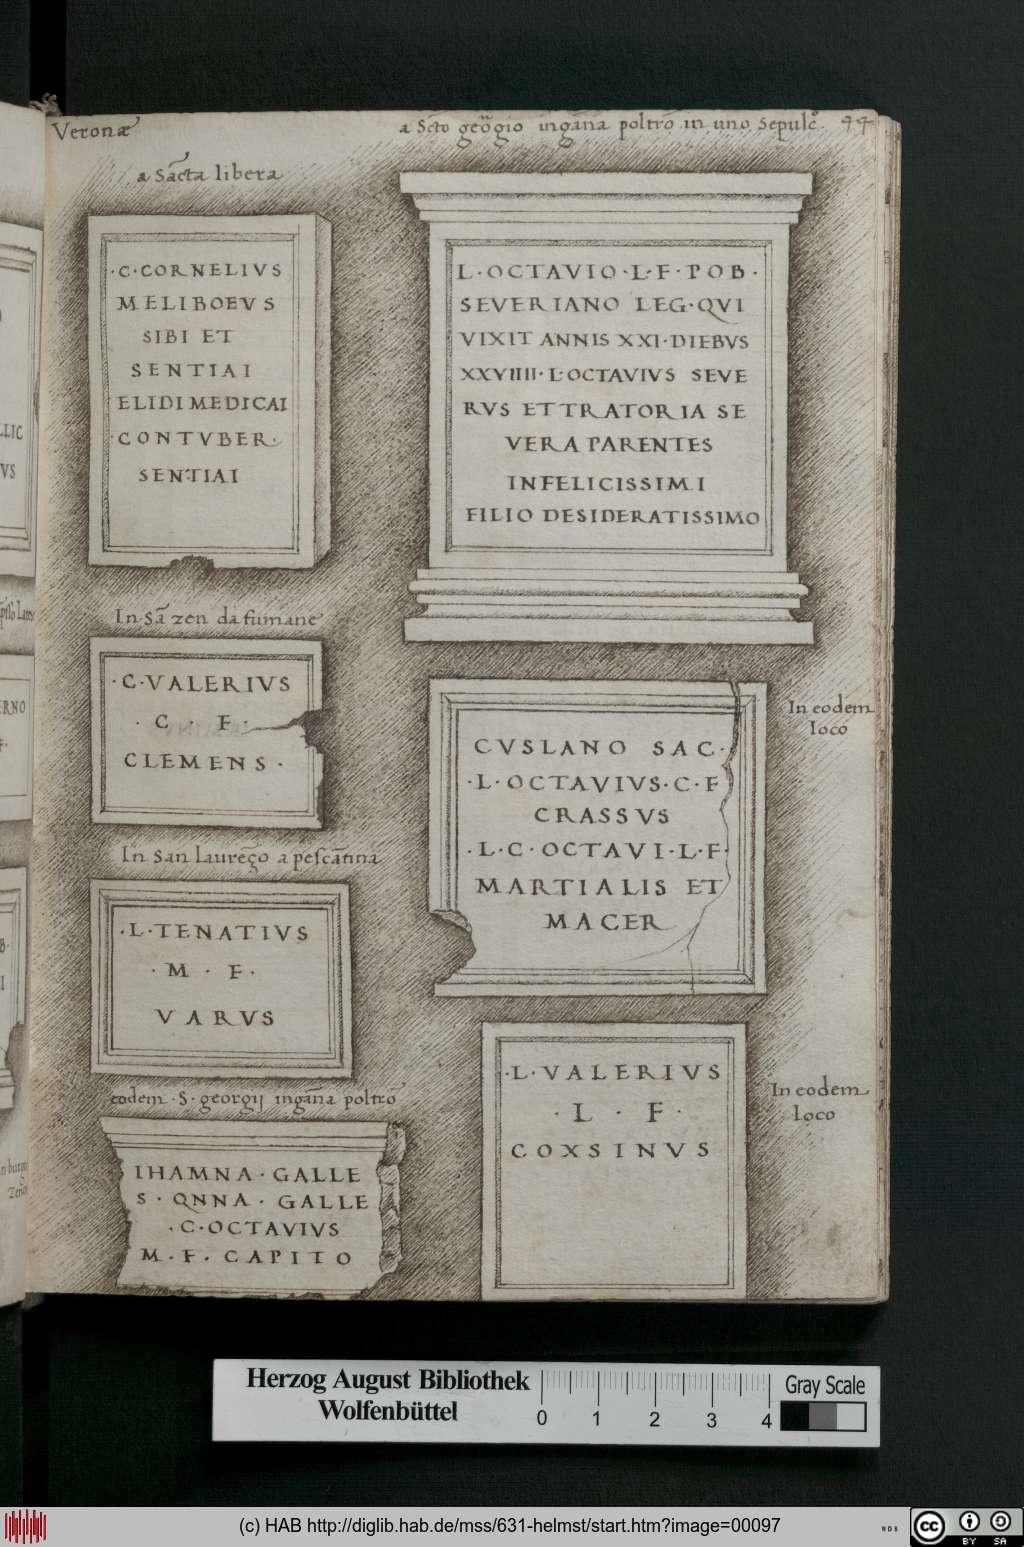 Veronæ
a Sc̄to geōrgio ingāna poltrō in uno Sepulc̊. 44
a Sācta libera
·C·CORNELIVS
MELIBOEVS
SIBI ET
SENTIAI
ELIDI MEDICAI
·CONTVBER·
SENTIAI
L·OCTAVIO·L·F·POB·
SEVERIANO LEG·QVI
VIXIT ANNIS XXI·DIEBVS
XXVIIII·L·OCTAVIVS SEVE
RVS ET TRATORIA SE
VERA PARENTES
INFELICISSIMI
FILIO DESIDERATISSIMO
In Sā zen da fumane
·C·VALERIVS
·C·F·
CLEMENS·
In eodem
loco
CVSLANO SAC·
·L·OCTAVIVS·C·F
CRASSVS
·L·C·OCTAVI·L·F·
MARTIALIS ET
MACER
In San laurēgo a pescātina
·L·TENATIVS
·M·F·
VARVS
eodem·S·georgij ingāna poltrō
IHAMNA·GALLE
S·QNNA·GALLE
·C·OCTAVIVS
M·F·CAPITO
In eodem
loco
·L·VALERIVS
·L·F·
COXSINVS
LLIC
VS
ERNO
Herzog August Bibliothek
Wolfenbüttel
0 1 2 3 4
Gray Scale
(c) HAB http://diglib.hab.de/mss/631-helmst/start.htm?image=00097
WDB
cc
BY SA